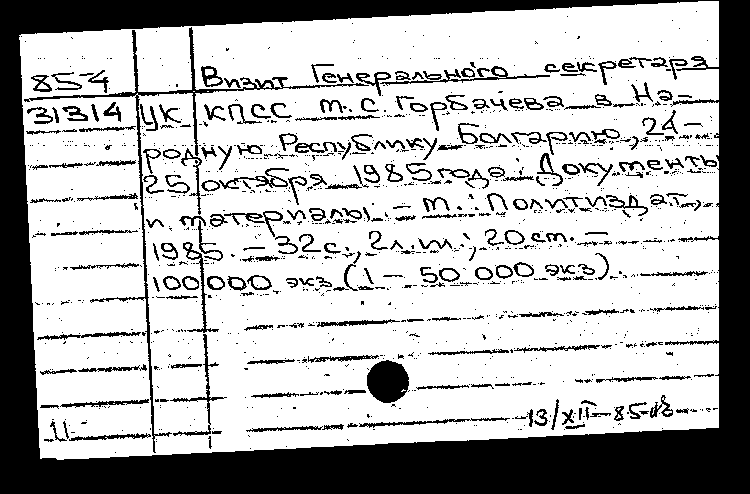 857 Визит Генерального секретаря
31314 ЦК КПСС т. С. Горбачева в На-
родную Республику Болгарию, 24-
25 октября 1985 года: Документы
и материалы. - т.: Политиздат,
1985. - 32 с., 2 л. ил.; 20 ст. -
100000 экз (1 - 50 000 экз).
11 13/XII-85